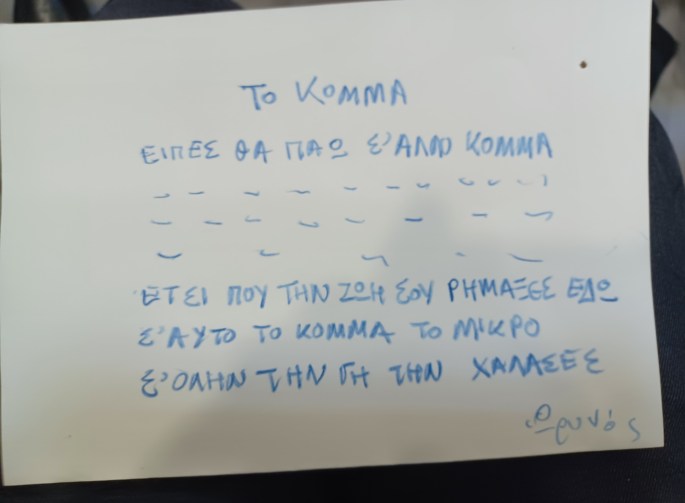 ΤΟ ΚΟΜΜΑ
ΕΙΠΕΣ ΘΑ ΠΑΩ Σ'ΑΛΛΟ ΚΟΜΜΑ
ΕΤΣΙ ΠΟΥ ΤΗΝ ΖΩΗ ΣΟΥ ΡΗΜΑΞΕΣ ΕΔΩ
Σ'ΑΥΤΟ ΤΟ ΚΟΜΜΑ ΤΟ ΜΙΚΡΟ
Σ'ΟΛΗΝ ΤΗΝ ΓΗ ΤΗΝ ΧΑΛΑΣΕΣ